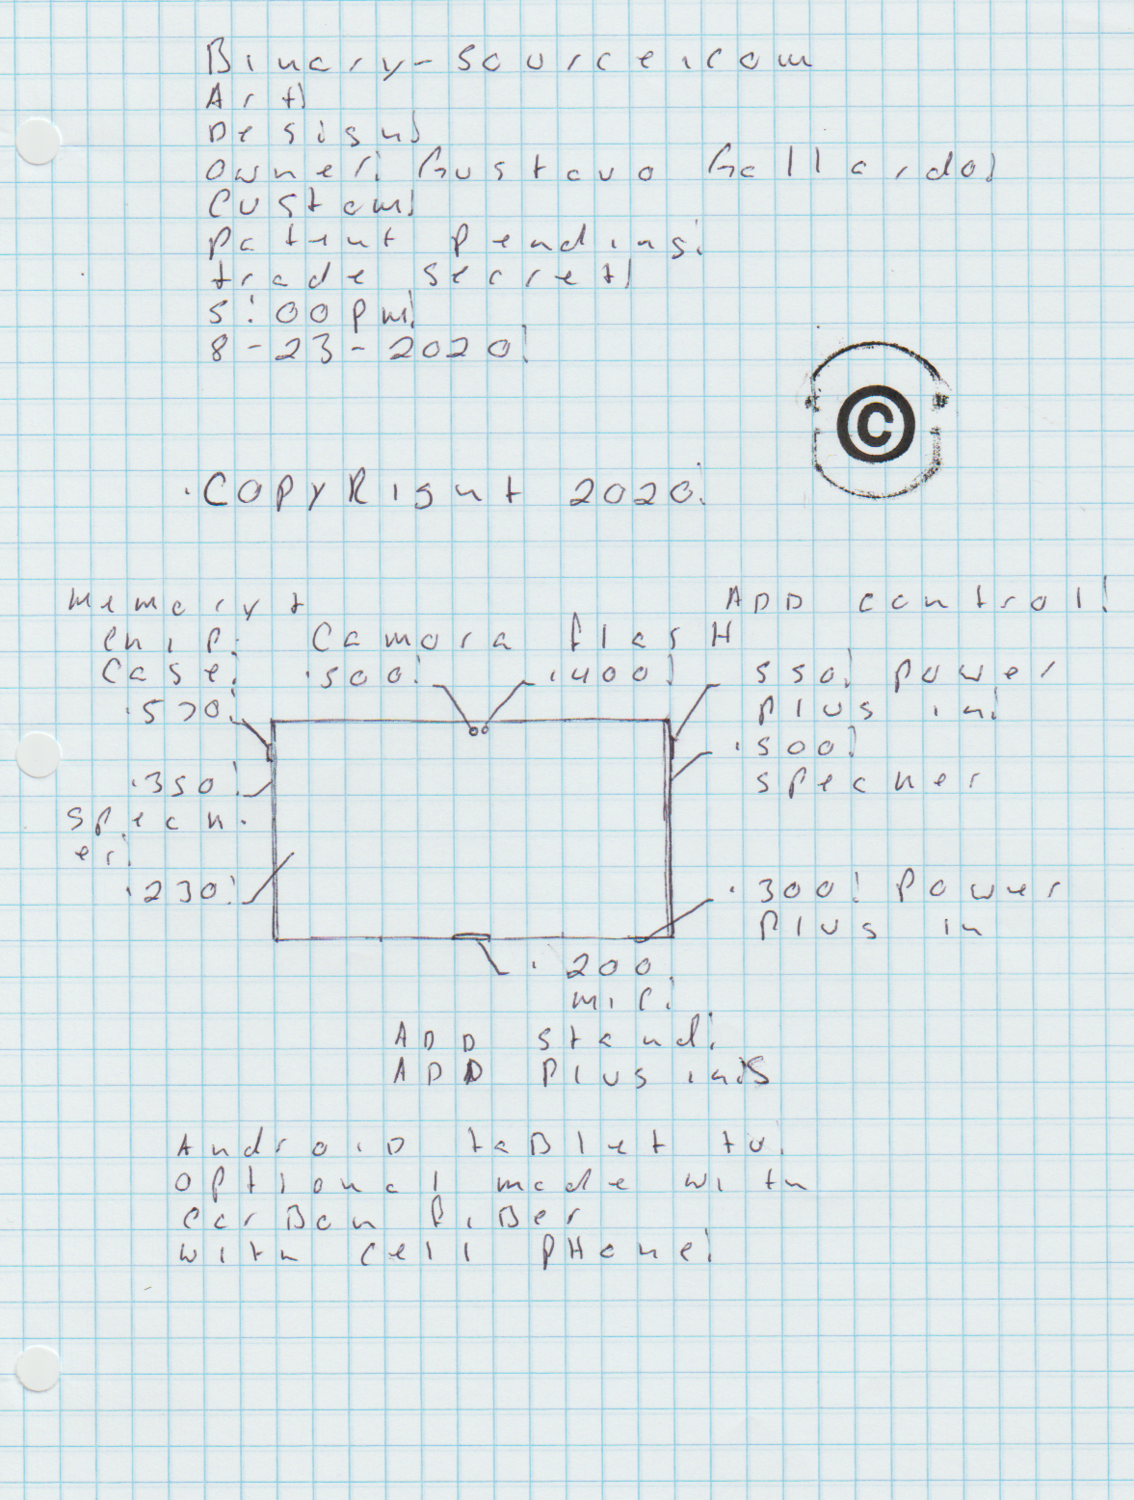 Binary-source.com
Art!
Desisn!
Owner: Gustavo Gallardo!
Custom!
Patent Pendins!
trade secret!
5:00 Pm!
8-23-2020!
©
.COPYRight 2020!
Memory t
Chip!
Case!
.570!
Camora flasH
.500!
.400!
ADD control!
550! power
Plus in!
.500!
speaher
.350!
speah.
er!
.230!
.300! Power
Plus in
.200
mic!
ADD stand!
ADD Plus ins
AndroiD taBlet tv.
optional made with
CarBon fiBer
with cell PHone!